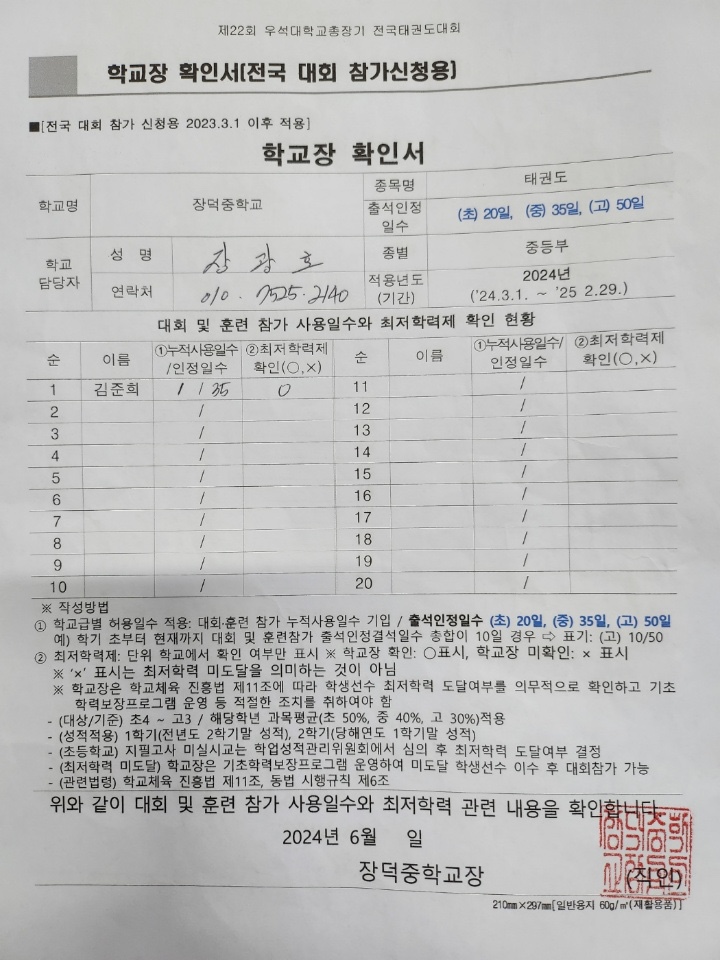 제22회 우석대학교총장기 전국태권도대회
학교장 확인서(전국 대회 참가신청용)
■[전국 대회 참가 신청용 2023.3.1 이후 적용]
학교장 확인서
학교명 장덕중학교 종목명 태권도
출석인정 일수 (초) 20일, (중) 35일, (고) 50일
학교 담당자 성 명 장광호 종별 중등부
연락처 010. 7525. 2140 적용년도 (기간) 2024년 ('24.3.1. ~ '25 2.29.)
대회 및 훈련 참가 사용일수와 최저학력제 확인 현황
순 이름 ①누적사용일수/인정일수 ②최저학력제 확인(○,×) 순 이름 ①누적사용일수/인정일수 ②최저학력제 확인(○,×)
1 김준희 1 / 35 0 11 /
2 / 12 /
3 / 13 /
4 / 14 /
5 / 15 /
6 / 16 /
7 / 17 /
8 / 18 /
9 / 19 /
10 / 20 /
※ 작성방법
① 학교급별 허용일수 적용: 대회·훈련 참가 누적사용일수 기입 / 출석인정일수 (초) 20일, (중) 35일, (고) 50일
예) 학기 초부터 현재까지 대회 및 훈련참가 출석인정결석일수 총합이 10일 경우 ⇨ 표기: (고) 10/50
② 최저학력제: 단위 학교에서 확인 여부만 표시 ※ 학교장 확인: ○표시, 학교장 미확인: × 표시
※ '×' 표시는 최저학력 미도달을 의미하는 것이 아님
※ 학교장은 학교체육 진흥법 제11조에 따라 학생선수 최저학력 도달여부를 의무적으로 확인하고 기초
학력보장프로그램 운영 등 적절한 조치를 취하여야 함
- (대상/기준) 초4 ~ 고3 / 해당학년 과목평균(초 50%, 중 40%, 고 30%)적용
- (성적적용) 1학기(전년도 2학기말 성적), 2학기(당해연도 1학기말 성적)
- (초등학교) 지필고사 미실시교는 학업성적관리위원회에서 심의 후 최저학력 도달여부 결정
- (최저학력 미도달) 학교장은 기초학력보장프로그램 운영하여 미도달 학생선수 이수 후 대회참가 가능
- (관련법령) 학교체육 진흥법 제11조, 동법 시행규칙 제6조
위와 같이 대회 및 훈련 참가 사용일수와 최저학력 관련 내용을 확인합니다
2024년 6월 일
장덕중학교장 (직인)
210㎜×297㎜[일반용지 60g/㎡(재활용품)]